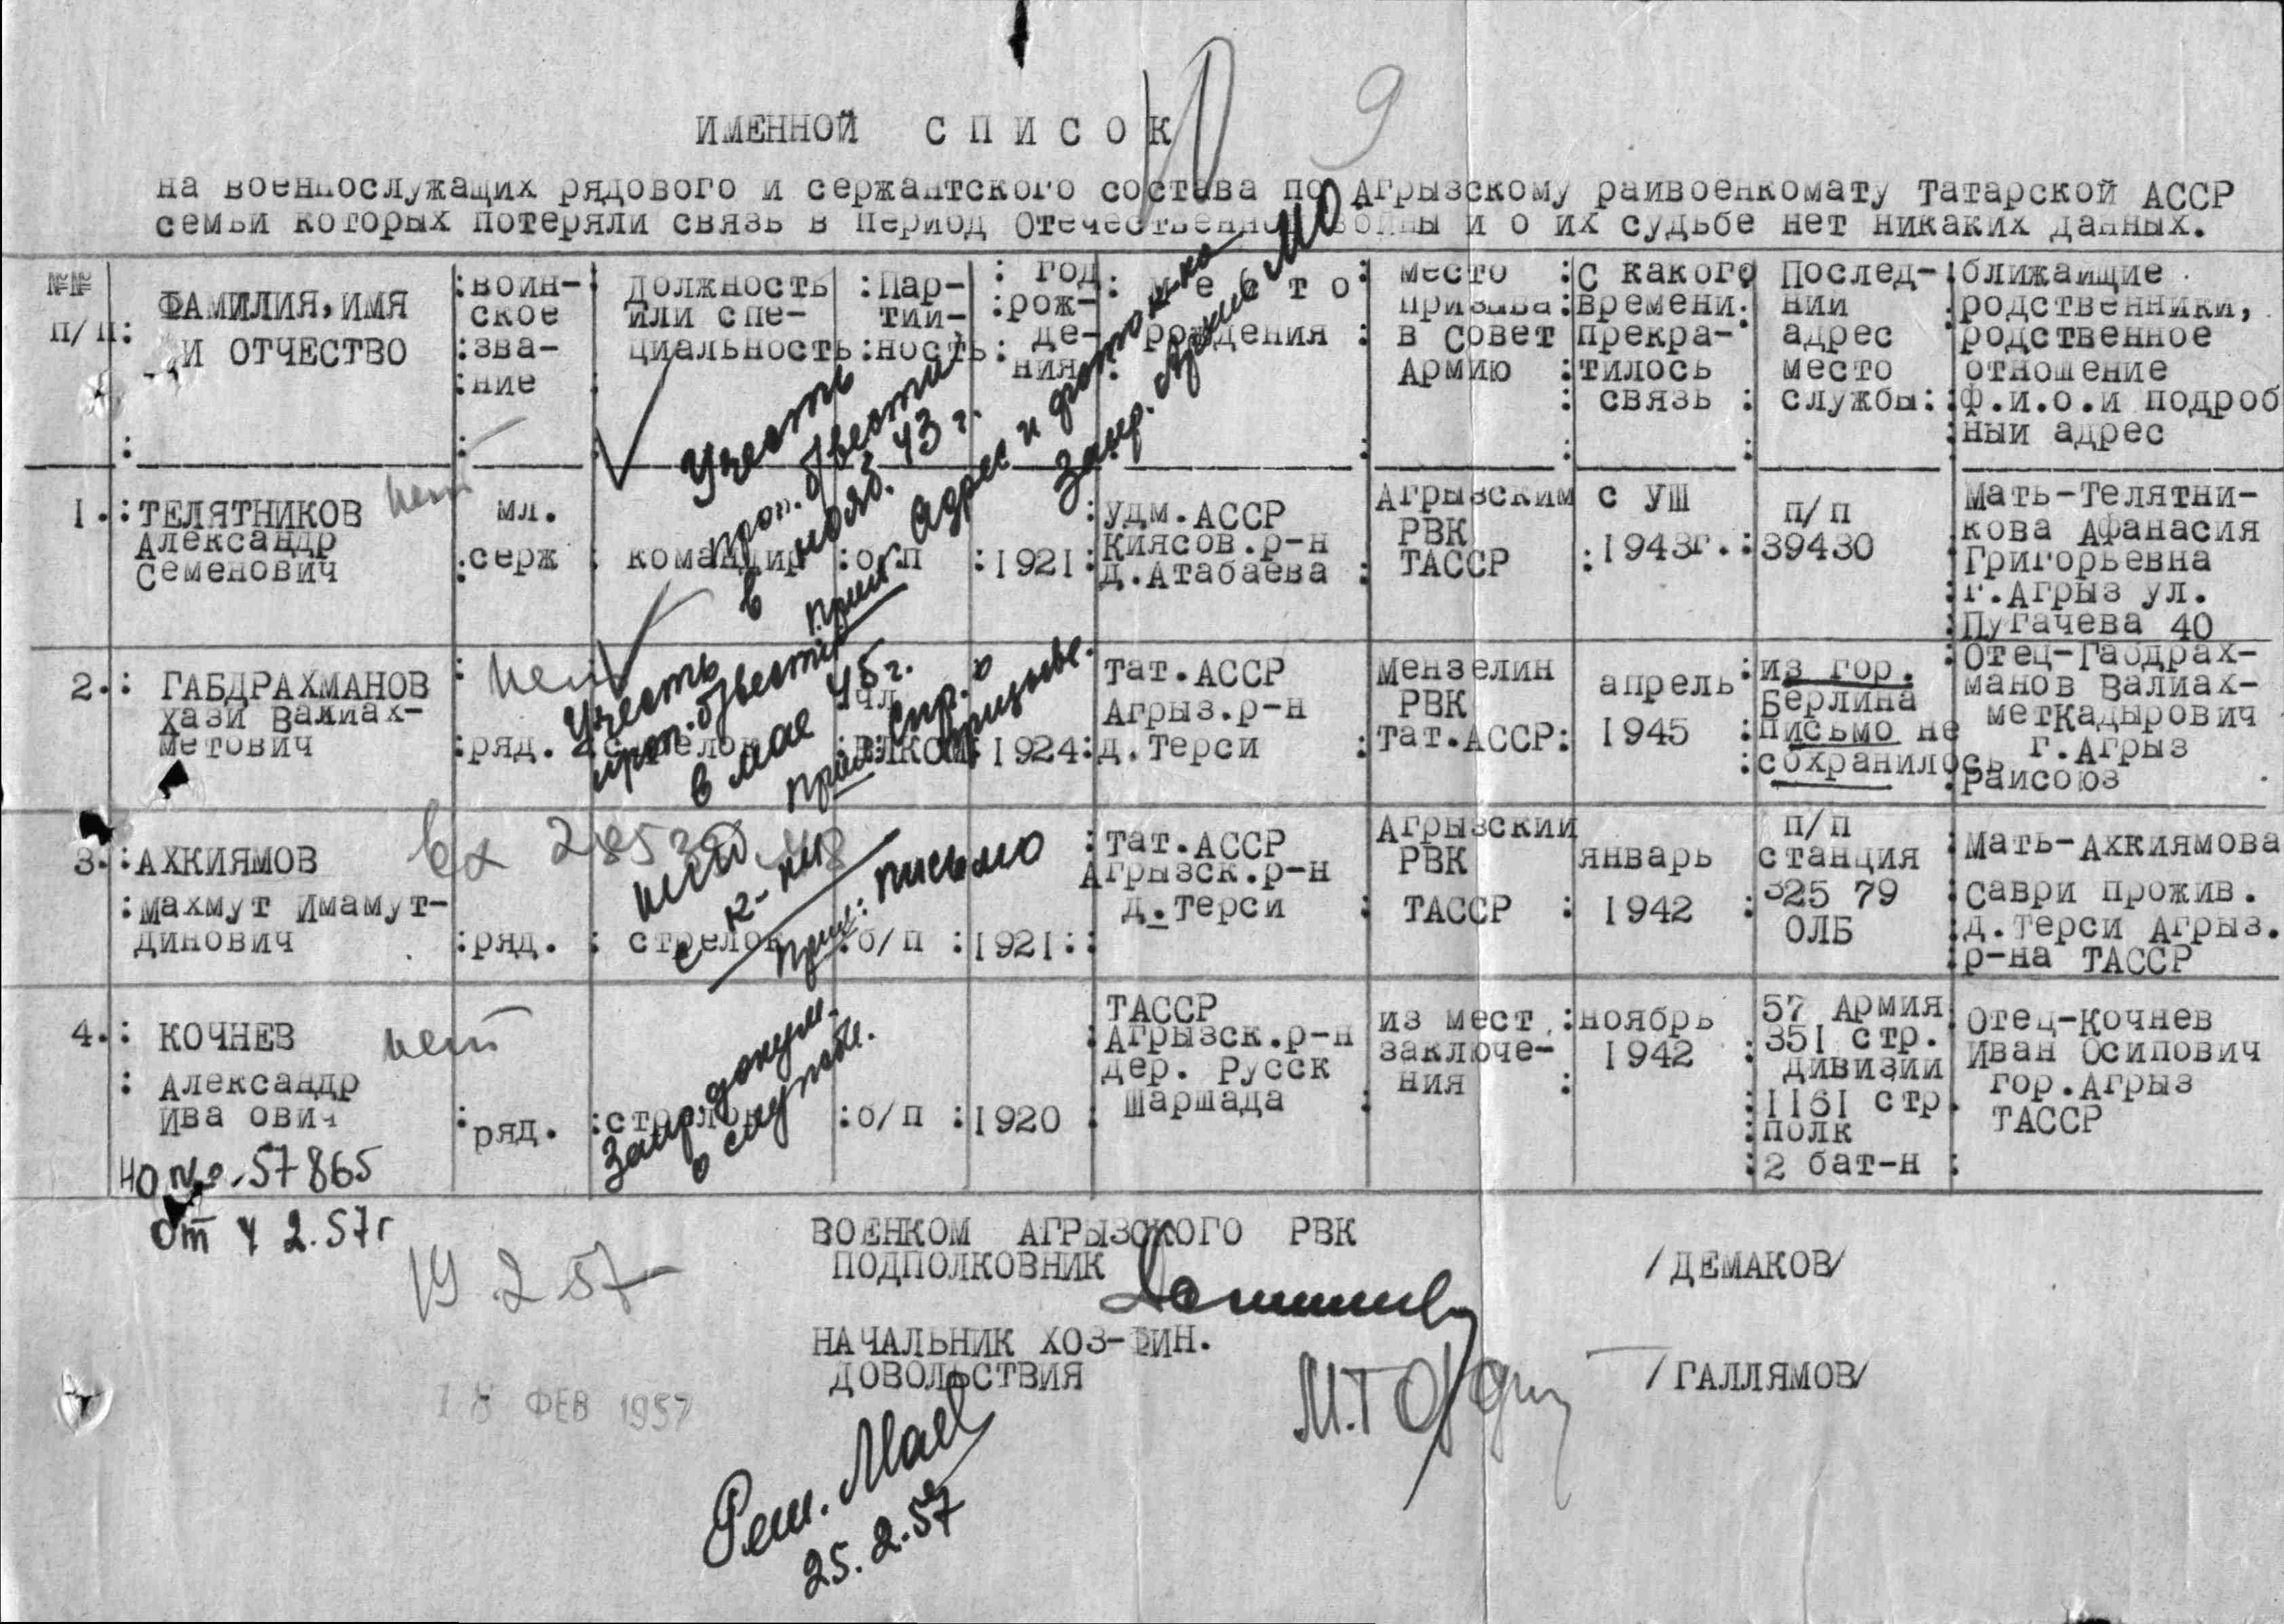 9
ИМЕННОЙ СПИСОК
на военнослужащих рядового и сержантского состава по Агрызскому райвоенкомату Татарской АССР
семьи которых потеряли связь в период Отечественной войны и о их судьбе нет никаких данных.
№№ п/п
ФАМИЛИЯ, ИМЯ
И ОТЧЕСТВО
воин-
ское
зва-
ние
должность
или спе-
циальность
Пар-
тий-
ность
год
рож-
де-
ния
Место
рождения
место
призыва
в Совет
Армию
С какого
времени
прекра-
тилось
связь
Послед-
ний
адрес
место
службы
ближайщие
родственники,
родственное
отношение
Ф.и.о.и подроб
ный адрес
1.
ТЕЛЯТНИКОВ
Александр
Семенович
нет
мл.
серж
командир
б/п
1921
Удм.АССР
Киясов.р-н
д.Атабаева
Агрызским
РВК
ТАССР
с УШ
1943г.
п/п
39430
Мать-Телятни-
кова Афанасия
Григорьевна
г.Агрыз ул.
Пугачева 40
Учесть
проп. б/вести
в нояб. 43 г.
Прич. адрес и фотогр
Запр. Архив МО
2.
ГАБДРАХМАНОВ
Хази Валиах-
метович
нет
ряд.
стрелок
чл.
ВЛКСМ
1924
Тат.АССР
Агрыз.р-н
д.Терси
Мензелин
РВК
Тат.АССР
апрель
1945
из гор.
Берлина
письмо не
сохранилось
Отец-Габдрах-
манов Валиах-
мет Кадырович
г.Агрыз
Райсоюз
Учесть
проп. б/вести
в мае 45 г.
Спр. о
призыве.
3.
АХКИЯМОВ
Махмут Имамут-
динович
Вх
ряд.
стрелок
б/п
1921
Тат.АССР
Агрызск.р-н
д.Терси
Агрызский
РВК
ТАССР
январь
1942
п/п
станция
325 79
ОЛБ
Мать-Ахкиямова
Саври прожив.
д.Терси Агрыз.
р-на ТАССР
письмо
4.
КОЧНЕВ
Александр
Ива ович
нет
ряд.
стрелок
б/п
1920
ТАССР
Агрызск.р-н
дер. Русск
Шаршада
из мест
заключе-
ния
ноябрь
1942
57 Армия
351 стр.
дивизии
1161 стр.
полк
2 бат-н
Отец-Кочнев
Иван Осипович
гор.Агрыз
ТАССР
Запр. докум.
о службе.
57865
от 4 2.57г
19.2.57
ВОЕНКОМ АГРЫЗСКОГО РВК
ПОДПОЛКОВНИК
/ДЕМАКОВ/
НАЧАЛЬНИК ХОЗ-ФИН.
ДОВОЛЬСТВИЯ
/ГАЛЛЯМОВ/
18 ФЕВ 1957
25.2.57